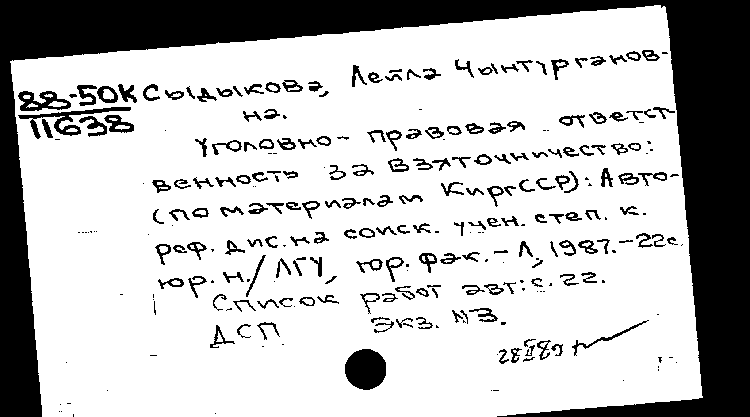 88-50К Сыдыкова, Лейла Чынтурганов-
11638 на.
Уголовно-правовая ответст-
венность за взяточничество:
(по материалам КиргССР): Авто-
реф. дис. на соиск. учен. степ. к.
юр. н./ЛГУ, юр. фак. - Л, 1987. - 22с.
Список работ авт: с. 22.
ДСП Экз. №3.